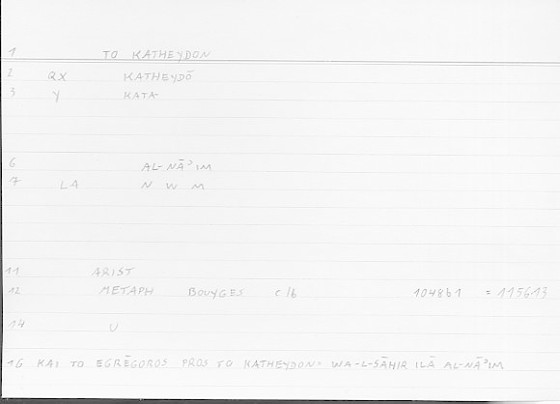 1 TO KATHEYDON
2 QX KATHEYDŌ
3 Y KATA-
6 AL-NĀʾIM
7 LA N W M
11 ARIST
12 METAPH BOUYGES C16 1048b1 = 1156.13
14 U
16 KAI TO EGRĒGOROS PROS TO KATHEYDON= WA-L-SĀHIR ILĀ AL-NĀʾIM